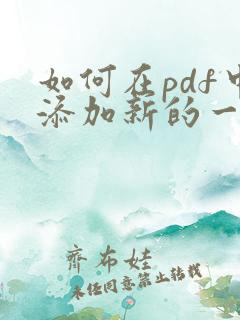 如何在pdf中
添加新的一
齐布娃
未经同意禁止转载